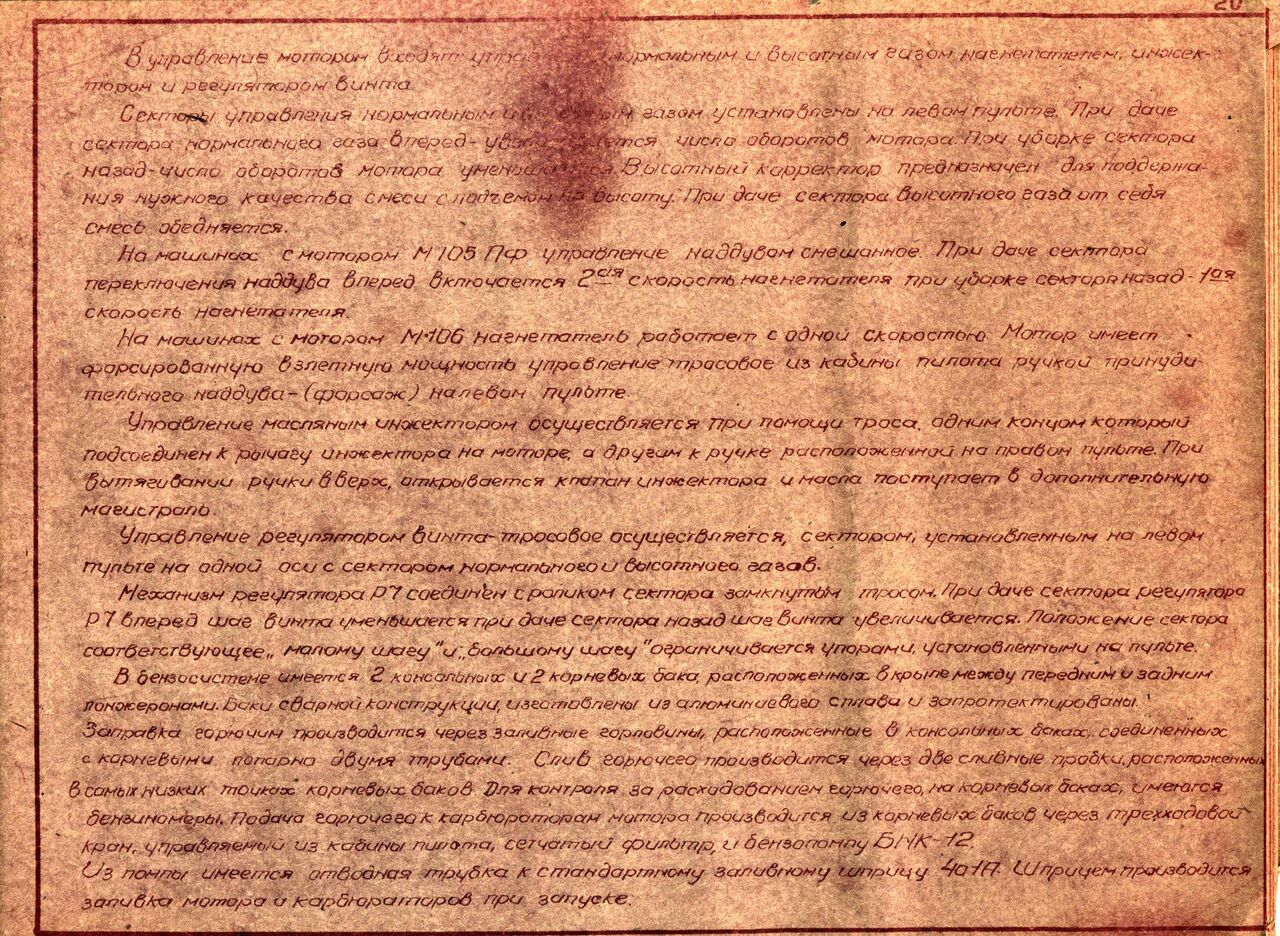 20
В управление мотором входят нормальным и высотным газом, нагнетателем, инжек-
тором и регулятором винта.
Секторы управления нормальным и газом установлены на левом пульте. При даче
сектора нормального газа вперед- число оборотов мотора. При уборке сектора
назад-число оборотов мотора Высотный корректор предназначен для поддержа-
ния нужного качества смеси с подъемом на высоту. При даче сектора высотного газа от себя
смесь обедняется.
На машинах с мотором М105 ПФ управление наддувом смешанное. При даче сектора
переключения наддува вперед включается 2ая скорость нагнетателя при уборке сектора назад - 1ая
скорость нагнетателя.
На машинах с мотором М-106 нагнетатель работает с одной скоростью. Мотор имеет
форсированную взлетную мощность управление тросовое из кабины пилота ручкой принуди-
тельного наддува-(форсаж) на левом пульте.
Управление масляным инжектором осуществляется при помощи троса, одним концом который
подсоединен к рычагу инжектора на моторе, а другим к ручке расположенной на правом пульте. При
вытягивании ручки вверх, открывается клапан инжектора и масло поступает в дополнительную
магистраль.
Управление регулятором винта-тросовое осуществляется, сектором, установленным на левом
пульте на одной оси с сектором нормального и высотного газов.
Механизм регулятора Р7 соединен с роликом сектора замкнутым тросом. При даче сектора регулятора
Р7 вперед шаг винта уменьшается при даче сектора назад шаг винта увеличивается. Положение сектора
соответствующее „малому шагу" и „большому шагу" ограничивается упорами, установленными на пульте.
В бензосистеме имеется 2 консольных и 2 корневых бака, расположенных в крыле между передним и задним
лонжеронами. Баки сварной конструкции, изготовлены из алюминиевого сплава и запротектированы.
Заправка горючим производится через заливные горловины, расположенные в консольных баках, соединенных
с корневыми попарно двумя трубами. Слив горючего производится через две сливные пробки, расположенных
в самых низких точках корневых баков. Для контроля за расходованием горючего, на корневых баках, имеются
бензиномеры. Подача горючего к карбюраторам мотора производится из корневых баков через трехходовой
кран, управляемый из кабины пилота, сетчатый фильтр, и бензопомпу БНК-12.
Из помпы имеется отводная трубка к стандартному заливному шприцу 401А. Шприцем производится
заливка мотора и карбюраторов при запуске.